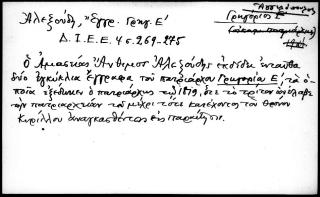 Ἀλεξούδη, "Ἔγγρ. Γρηγ. Ε΄
Γρηγόριος Ε΄
Δ.Ι.Ε.Ε. 4 σ. 269-275
Ὁ Ἀμασείας Ἄνθιμος Ἀλεξούδης ἐκδίδει ἐνταῦθα
δύο ἐγκύκλια ἔγγραφα τοῦ πατριάρχου Γρηγορίου Ε΄, τὰ ὁ-
ποῖα ἐξέδωκεν ὁ πατριάρχης τῷ 1819, ὅτε τὸ τρίτον ἀνέλαβε
τὴν πατριαρχείαν τοῦ μέχρι τότε κατέχοντος τὸν θρόνον
Κυρίλλου ἀναγκασθέντος εἰς παραίτησιν.